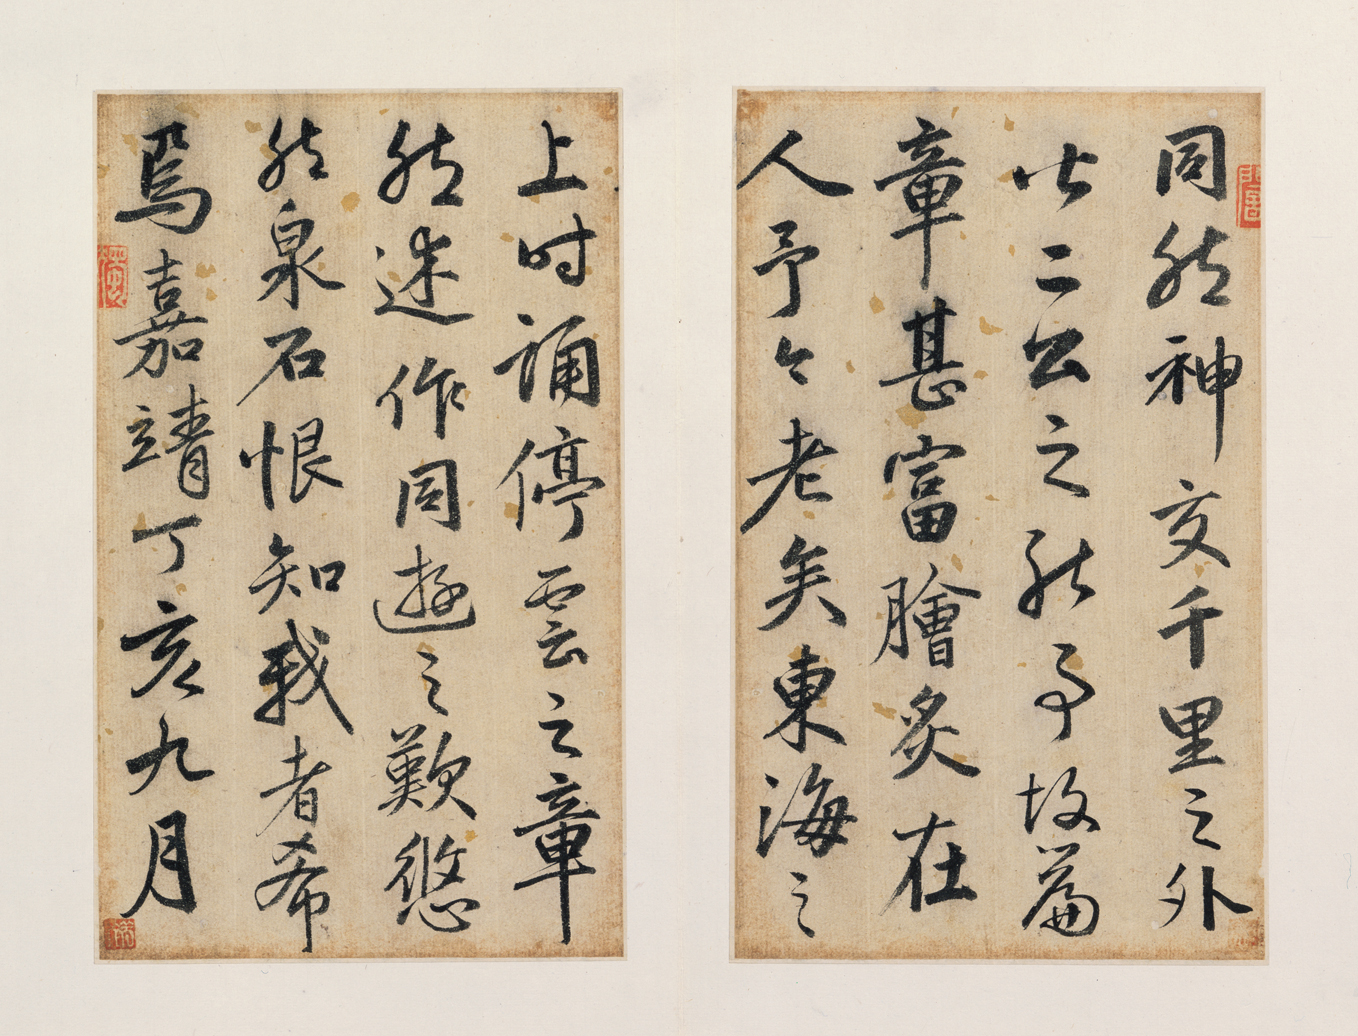 同然神交千里之外
此二公之能事故篇
章甚富膾炙在
人予今老矣東海之
上时誦停雲之章
然述作同遊之歎悠
然泉石恨知我者希
焉嘉靖丁亥九月